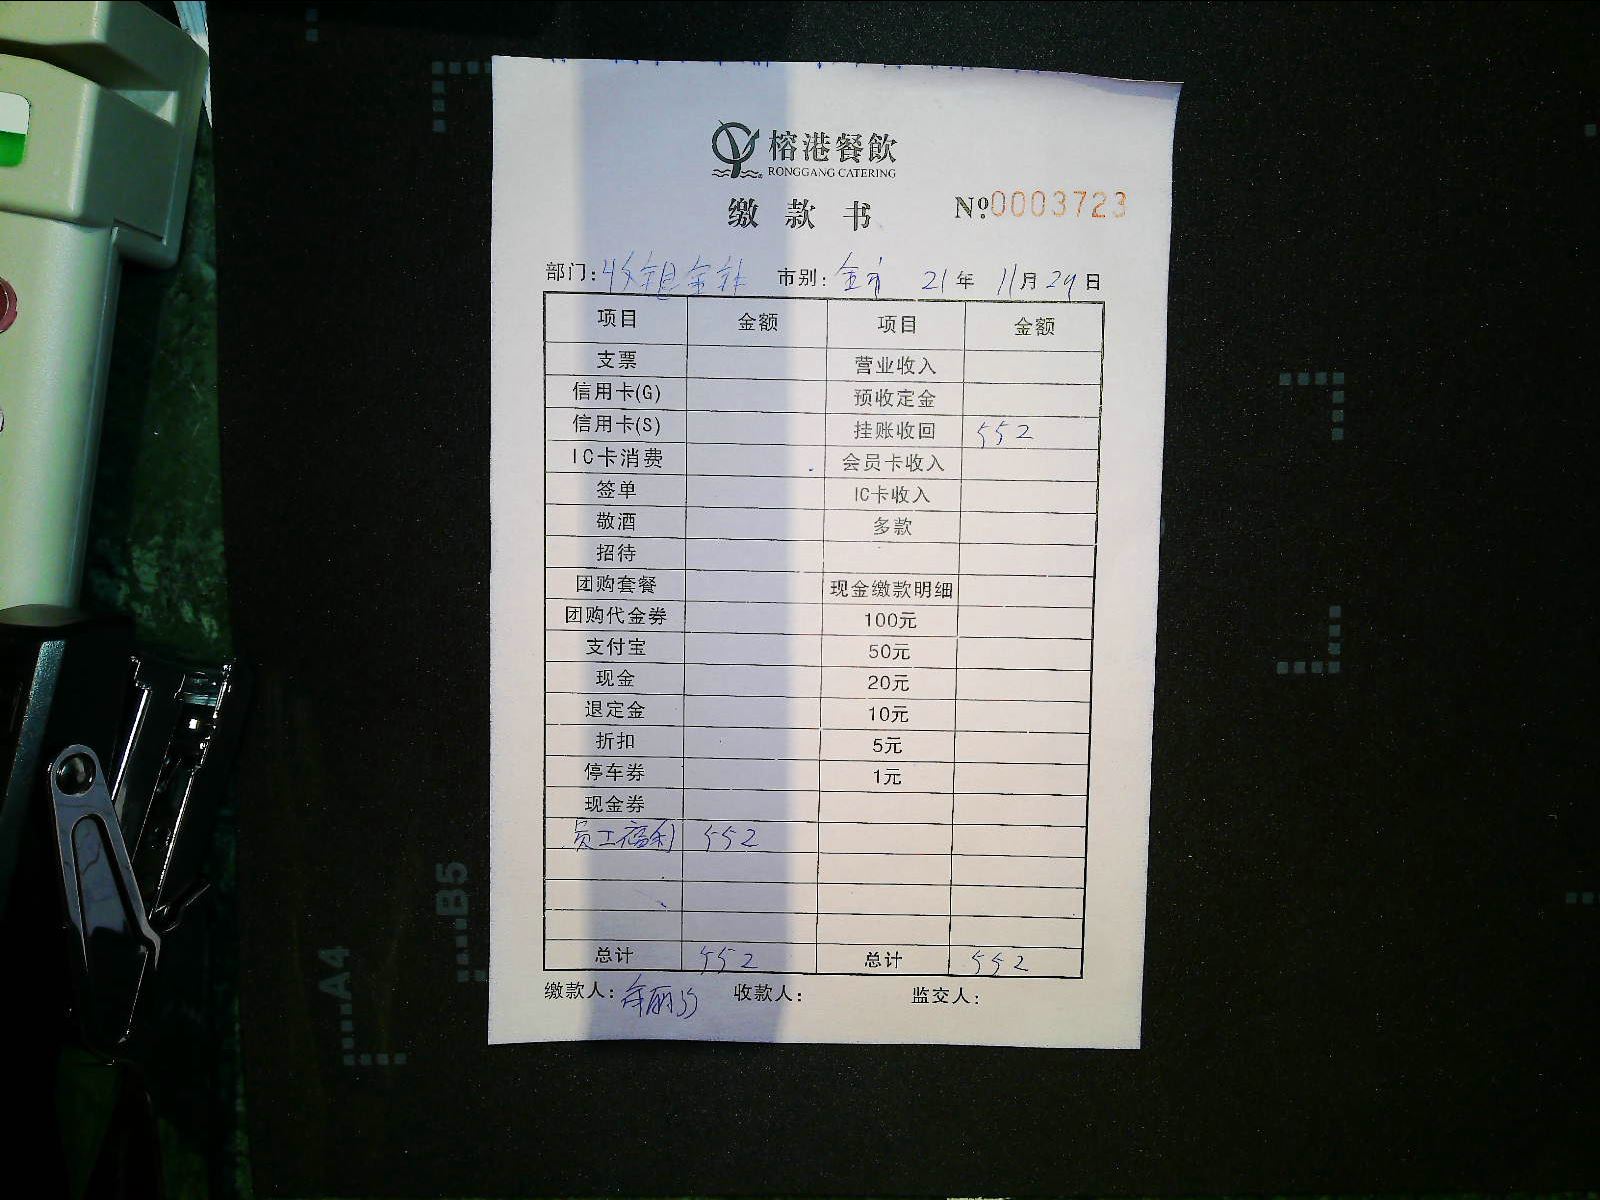 榕港餐飲
RONGGANG CATERING
缴款书 Nº0003723
部门:收银 市别:全市 21年11月29日
项目 金额 项目 金额
支票 营业收入
信用卡(G) 预收定金
信用卡(S) 挂账收回 552
IC卡消费 会员卡收入
签单 IC卡收入
敬酒 多款
招待
团购套餐 现金缴款明细
团购代金券 100元
支付宝 50元
现金 20元
退定金 10元
折扣 5元
停车券 1元
现金券
员工福利 552
总计 552 总计 552
缴款人: 收款人: 监交人:
B5
A4